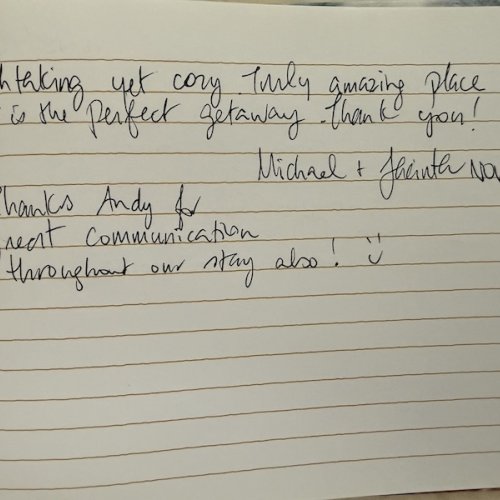 htaking yet cozy. Truly amazing place
is the perfect getaway. Thank you!
Michael + NOV
hanks Andy for
reat communication
throughout our stay also! :)